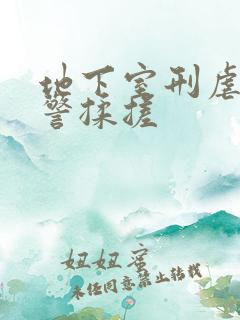 地下室刑虐
警揉搓
妞妞蜜
未经同意禁止转载